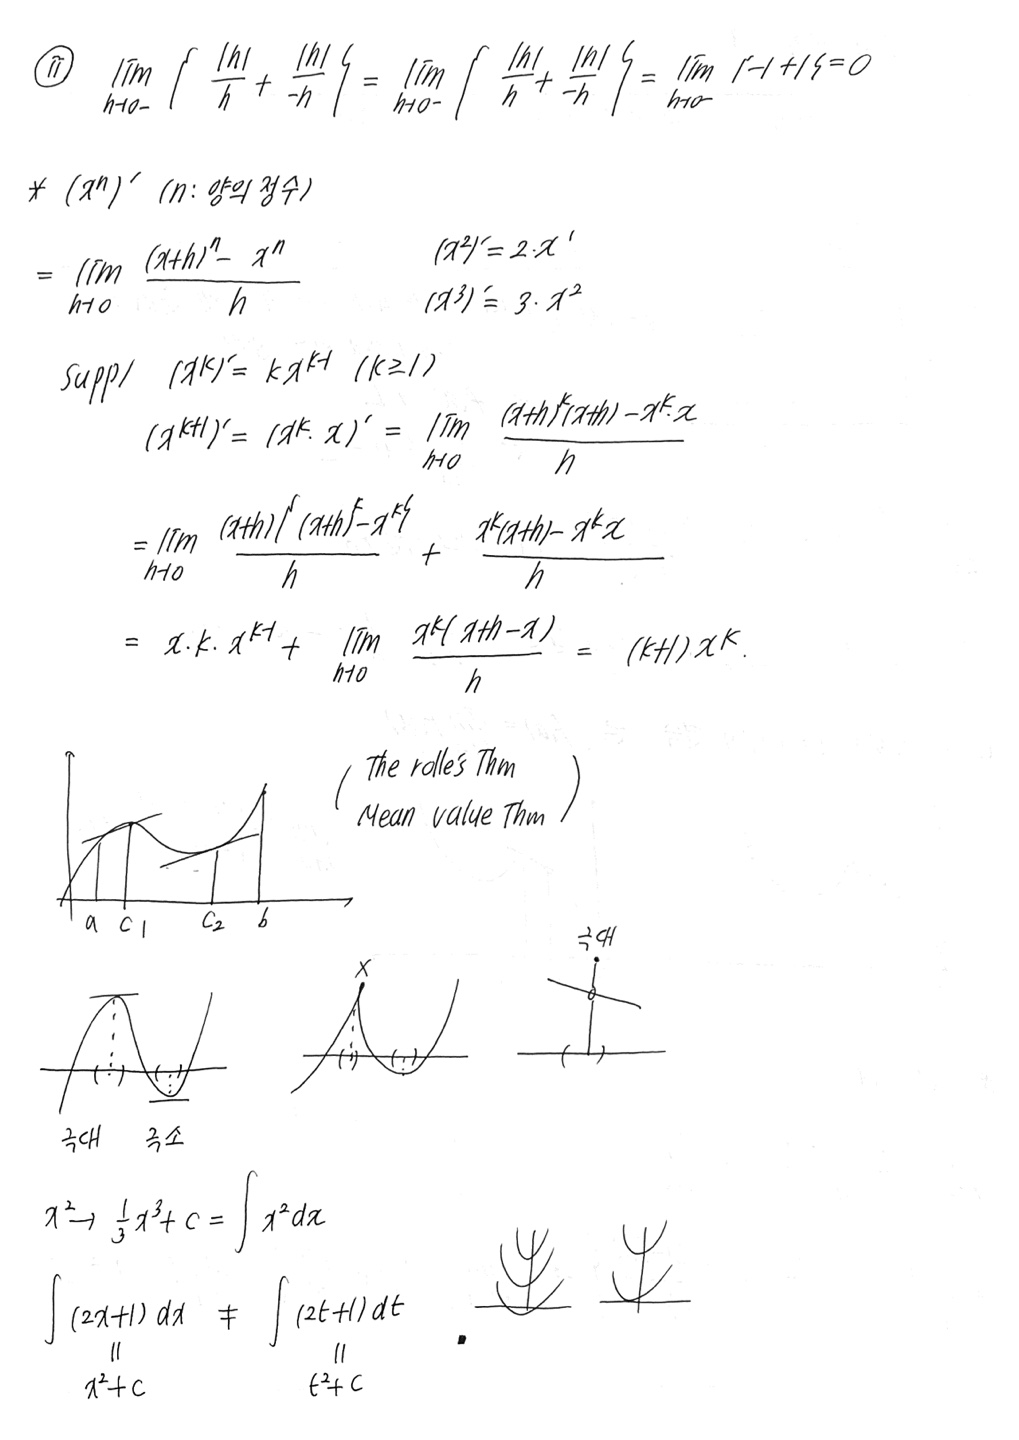 ⓘⓘ lim h→0- { |h|/h + |h|/-h } = lim h→0- { |h|/h + |h|/-h } = lim h→0- {-1+1} = 0
* (xⁿ)′ (n: 양의 정수)
= lim h→0 ((x+h)ⁿ - xⁿ)/h
(x²)′ = 2·x¹
(x³)′ = 3·x²
supp/ (x^k)′ = kx^(k-1) (k≥1)
(x^(k+1))′ = (x^k·x)′ = lim h→0 ((x+h)^k(x+h) - x^k·x)/h
= lim h→0 ((x+h){(x+h)^k - x^k})/h + (x^k(x+h) - x^k x)/h
= x·k·x^(k-1) + lim h→0 (x^k(x+h-x))/h = (k+1)x^k.
( The rolle's Thm
Mean value Thm )
a c1 c2 b
극대
x
극대 극소
x² → 1/3 x³ + c = ∫ x² dx
∫ (2x+1) dx ≠ ∫ (2t+1) dt
|| ||
x²+c t²+c